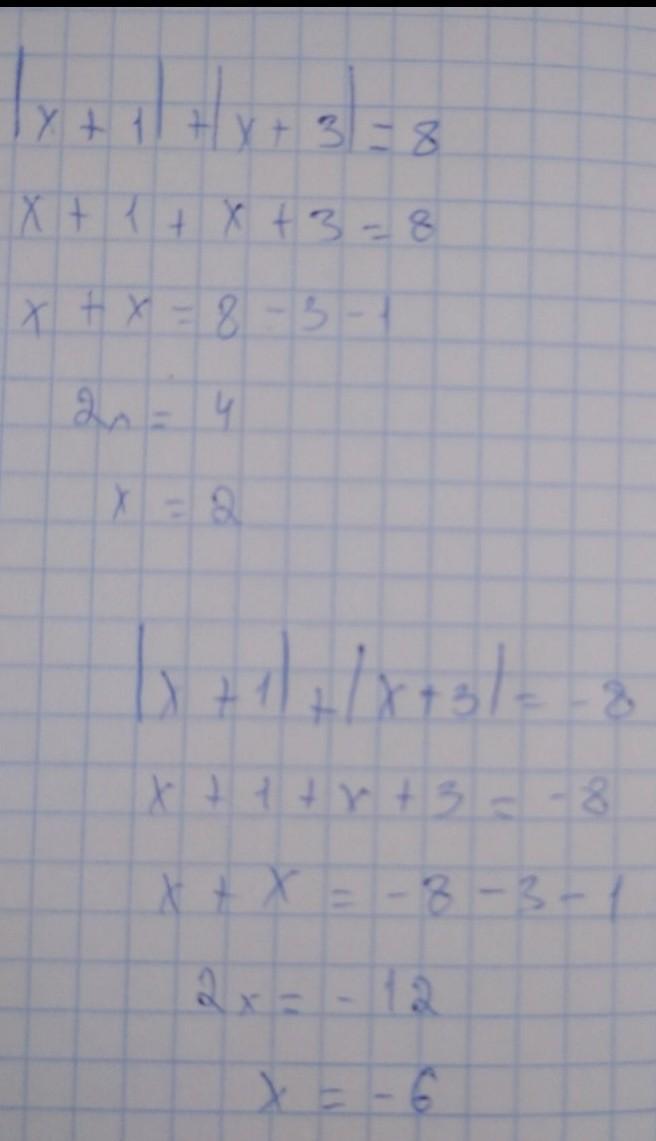 |x + 1| + |x + 3| = 8
x + 1 + x + 3 = 8
x + x = 8 - 3 - 1
2x = 4
x = 2
|x + 1| + |x + 3| = -8
x + 1 + x + 3 = -8
x + x = -8 - 3 - 1
2x = -12
x = -6